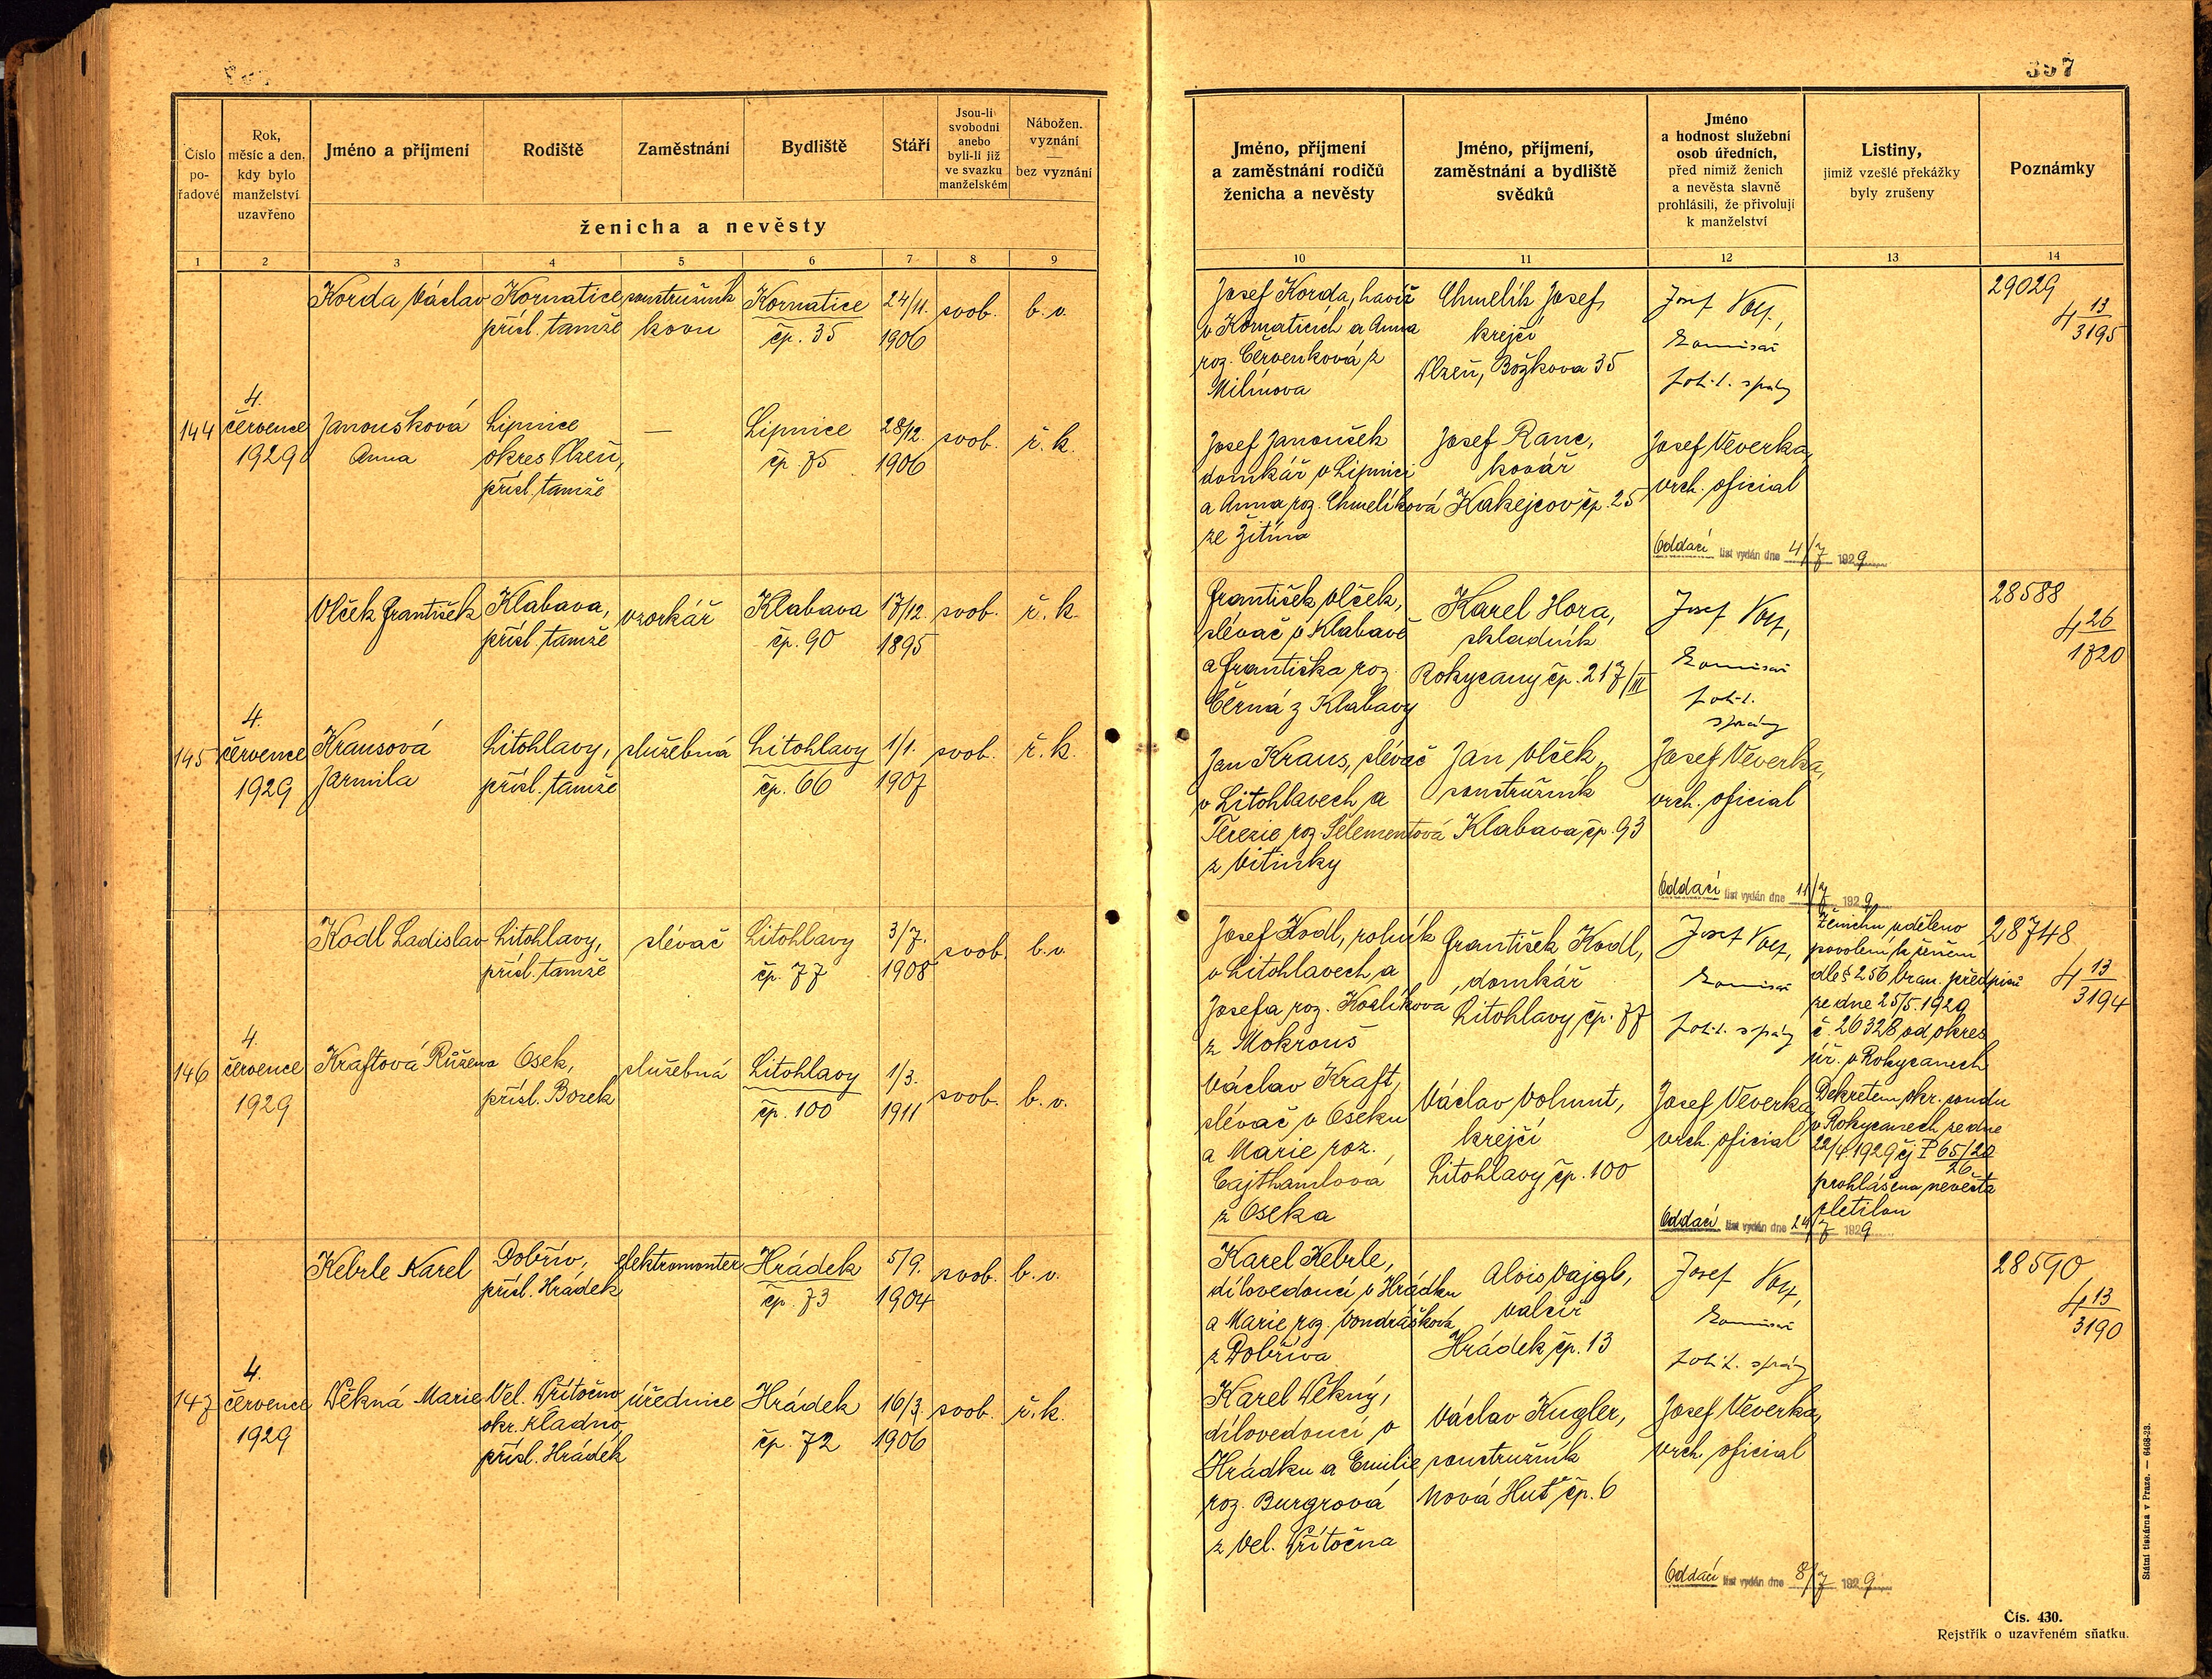 357
Číslo
po-
řadové
Rok,
měsíc a den,
kdy bylo
manželství
uzavřeno
Jméno a příjmení
Rodiště
Zaměstnání
Bydliště
Stáří
Jsou-li
svobodni
anebo
byli-li již
ve svazku
manželském
Nábožen.
vyznání
—
bez vyznání
ženicha a nevěsty
1 2 3 4 5 6 7 8 9
Korda Václav Kornatice soustružník Kornatice 24/11. svob. b. v.
přísl. tamže kovu čp. 35 1906
4.
144 července Janoušková Lipnice — Lipnice 28/12. svob. ř. k.
1929 Anna okres Plzeň, čp. 75 1906
přísl. tamže
Vlček František Klabava, vzorkář Klabava 17/12. svob. ř. k.
přísl. tamže čp. 90 1895
4.
145 července Krausová Litohlavy, služebná Litohlavy 1/1. svob. ř. k.
1929 Jarmila přísl. tamže čp. 66 1907
Kodl Ladislav Litohlavy, slévač Litohlavy 3/7. svob. b. v.
přísl. tamže čp. 77 1908
4.
146 července Kraftová Růžena Osek, služebná Litohlavy 1/3. svob. b. v.
1929 přísl. Borek čp. 100 1911
Kebrle Karel Dobřív, elektromonter Hrádek 5/9. svob. b. v.
přísl. Hrádek čp. 73 1904
4.
147 července Pěkná Marie Vel. Přítočno úřednice Hrádek 16/3. svob. ř. k.
1929 okr. Kladno, čp. 72 1906
přísl. Hrádek
Jméno, příjmení
a zaměstnání rodičů
ženicha a nevěsty
Jméno, příjmení,
zaměstnání a bydliště
svědků
Jméno
a hodnost služební
osob úředních,
před nimiž ženich
a nevěsta slavně
prohlásili, že přivolují
k manželství
Listiny,
jimiž vzešlé překážky
byly zrušeny
Poznámky
10 11 12 13 14
Josef Korda, havíř
v Kornaticích a Anna
roz. Červenková z
Milínova
Chmelík Josef,
krejčí
Plzeň, Božkova 35
Josef
komisař
polit. správy
29029
4 13
3195
Josef Janoušek
domkář v Lipnici
a Anna roz. Chmelíková
ze Žitína
Josef Ranc,
kovář
Kakejcov čp. 25
Josef Veverka,
vrch. oficial
Oddací list vydán dne 4/7 1929
František Vlček,
slévač v Klabavě
a Františka roz.
Černá z Klabavy
Karel Hora,
skladník
Rokycany čp. 217/III
Josef
komisař
polit.
správy
28588
4 26
1720
Jan Kraus, slévač
v Litohlavech a
Terezie roz. Selementová
z Vitinky
Jan Vlček,
soustružník
Klabava čp. 93
Josef Veverka,
vrch. oficial
Oddací list vydán dne 11/7 1929
Josef Kodl, rolník
v Litohlavech a
Josefa roz. Košlíkova
z Mokrouš
František Kodl,
domkář
Litohlavy čp. 77
Josef
komisař
polit. správy
Ženichu uděleno
povolení k ženění
dle § 256 bran. předpisů
ze dne 25/5.1929
č. 26328 od okres.
úř. v Rokycanech
28748
4 13
3194
Václav Kraft,
slévač v Oseku
a Marie roz.
Cajthamlová
z Oseka
Václav Volmut,
krejčí
Litohlavy čp. 100
Josef Veverka
vrch. oficial
Dekretem okr. soudu
v Rokycanech ze dne
22/4.1929 čj P 65/20
26
prohlášena nevěsta
zletilou
Oddací list vydán dne 24/7 1929
Karel Kebrle,
dílovedoucí v Hrádku
a Marie roz. Vondrášková
z Dobříva
Alois Vajgl,
valcíř
Hrádek, čp. 13
Josef
komisař
polit. správy
28590
4 13
3190
Karel Pěkný,
dílovedoucí v
Hrádku a Emilie
roz. Burgrová
z Vel. Přítočna
Václav Kugler,
soustružník
Nová Huť čp. 6
Josef Veverka,
vrch. oficial
Oddací list vydán dne 8/7 1929
Státní tiskárna v Praze. — 6468-23.
Čís. 430.
Rejstřík o uzavřeném sňatku.